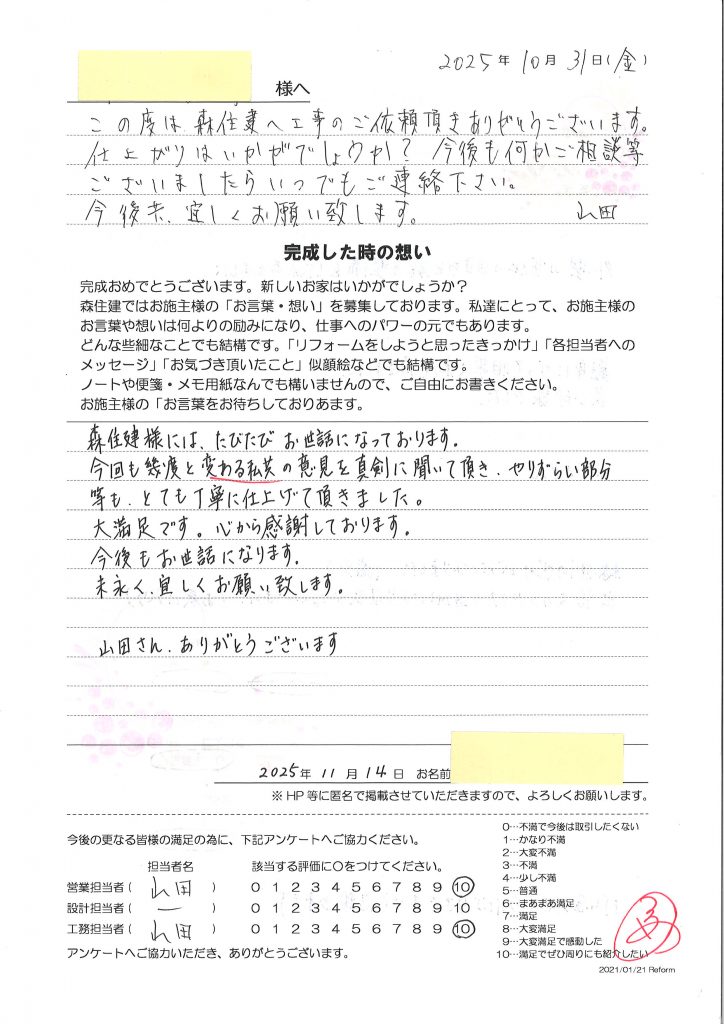 2025年10月31日(金)
様へ
この度は森住建へ工事のご依頼頂きありがとうございます。
仕上がりはいかがでしょうか? 今後も何かご相談等
ございましたらいつでもご連絡下さい。
今後共、宜しくお願い致します。 山田
完成した時の想い
完成おめでとうございます。新しいお家はいかがでしょうか?
森住建ではお施主様の「お言葉・想い」を募集しております。私達にとって、お施主様の
お言葉や想いは何よりの励みになり、仕事へのパワーの元でもあります。
どんな些細なことでも結構です。「リフォームをしようと思ったきっかけ」「各担当者への
メッセージ」「お気づき頂いたこと」似顔絵などでも結構です。
ノートや便箋・メモ用紙なんでも構いませんので、ご自由にお書きください。
お施主様の「お言葉をお待ちしておりあます。
森住建様には、たびたび お世話になっております。
今回も幾度と変わる私共の意見を真剣に聞いて頂き、やりずらい部分
等も、とても丁寧に仕上げて頂きました。
大満足です。心から感謝しております。
今後もお世話になります。
末永く、宜しくお願い致します。
山田さん、ありがとうございます
2025年 11月 14日 お名前
※HP等に匿名で掲載させていただきますので、よろしくお願いします。
今後の更なる皆様の満足の為に、下記アンケートへご協力ください。
担当者名 該当する評価に○をつけてください。
営業担当者( 山田 ) 0 1 2 3 4 5 6 7 8 9 10
設計担当者( ー ) 0 1 2 3 4 5 6 7 8 9 10
工務担当者( 山田 ) 0 1 2 3 4 5 6 7 8 9 10
アンケートへご協力いただき、ありがとうございます。
0…不満で今後は取引したくない
1…かなり不満
2…大変不満
3…不満
4…少し不満
5…普通
6…まあまあ満足
7…満足
8…大変満足
9…大変満足で感動した
10…満足でぜひ周りにも紹介したい
2021/01/21 Reform